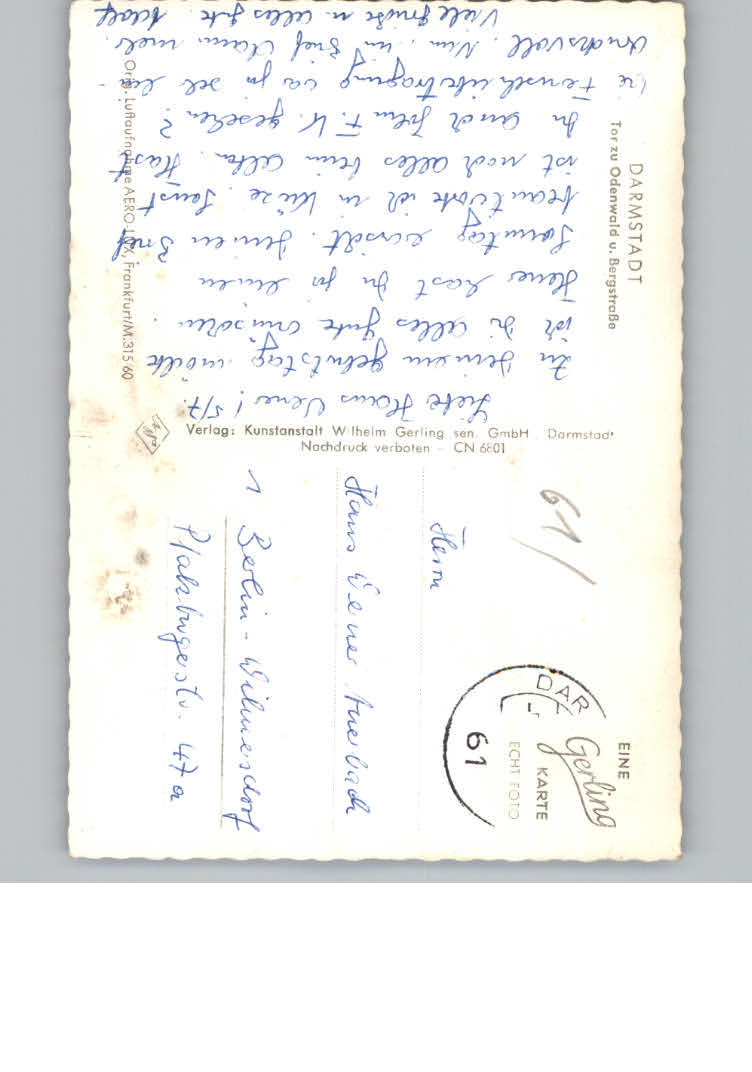 DARMSTADT
Tor zu Odenwald u. Bergstraße
Lieber Hans Werner! 5/7.
Zu Deinem Geburtstag möchte
ich Dir alles Gute wünschen.
hast Du ja einen
Sonntag erwischt. Deinen Brief
beantworte ich in Kürze. Sonst
ist noch alles beim alten. Hast
Du auch John F. K. gesehen?
Die Fernsehübertragung war ja sehr ein-
drucksvoll. Nun, im Brief dann mehr.
Viele Grüße u. alles Gute
Orig. Luftaufnahme AERO-LUX, Frankfurt/M. 315/60
Verlag: Kunstanstalt Wilhelm Gerling sen. GmbH Darmstadt
Nachdruck verboten – CN 6801
EINE
Gerling
KARTE
ECHT FOTO
DAR
61
61/
Herrn
Hans Werner Auerbach
1 Berlin-Wilmersdorf
Pfalzburgerstr. 47a